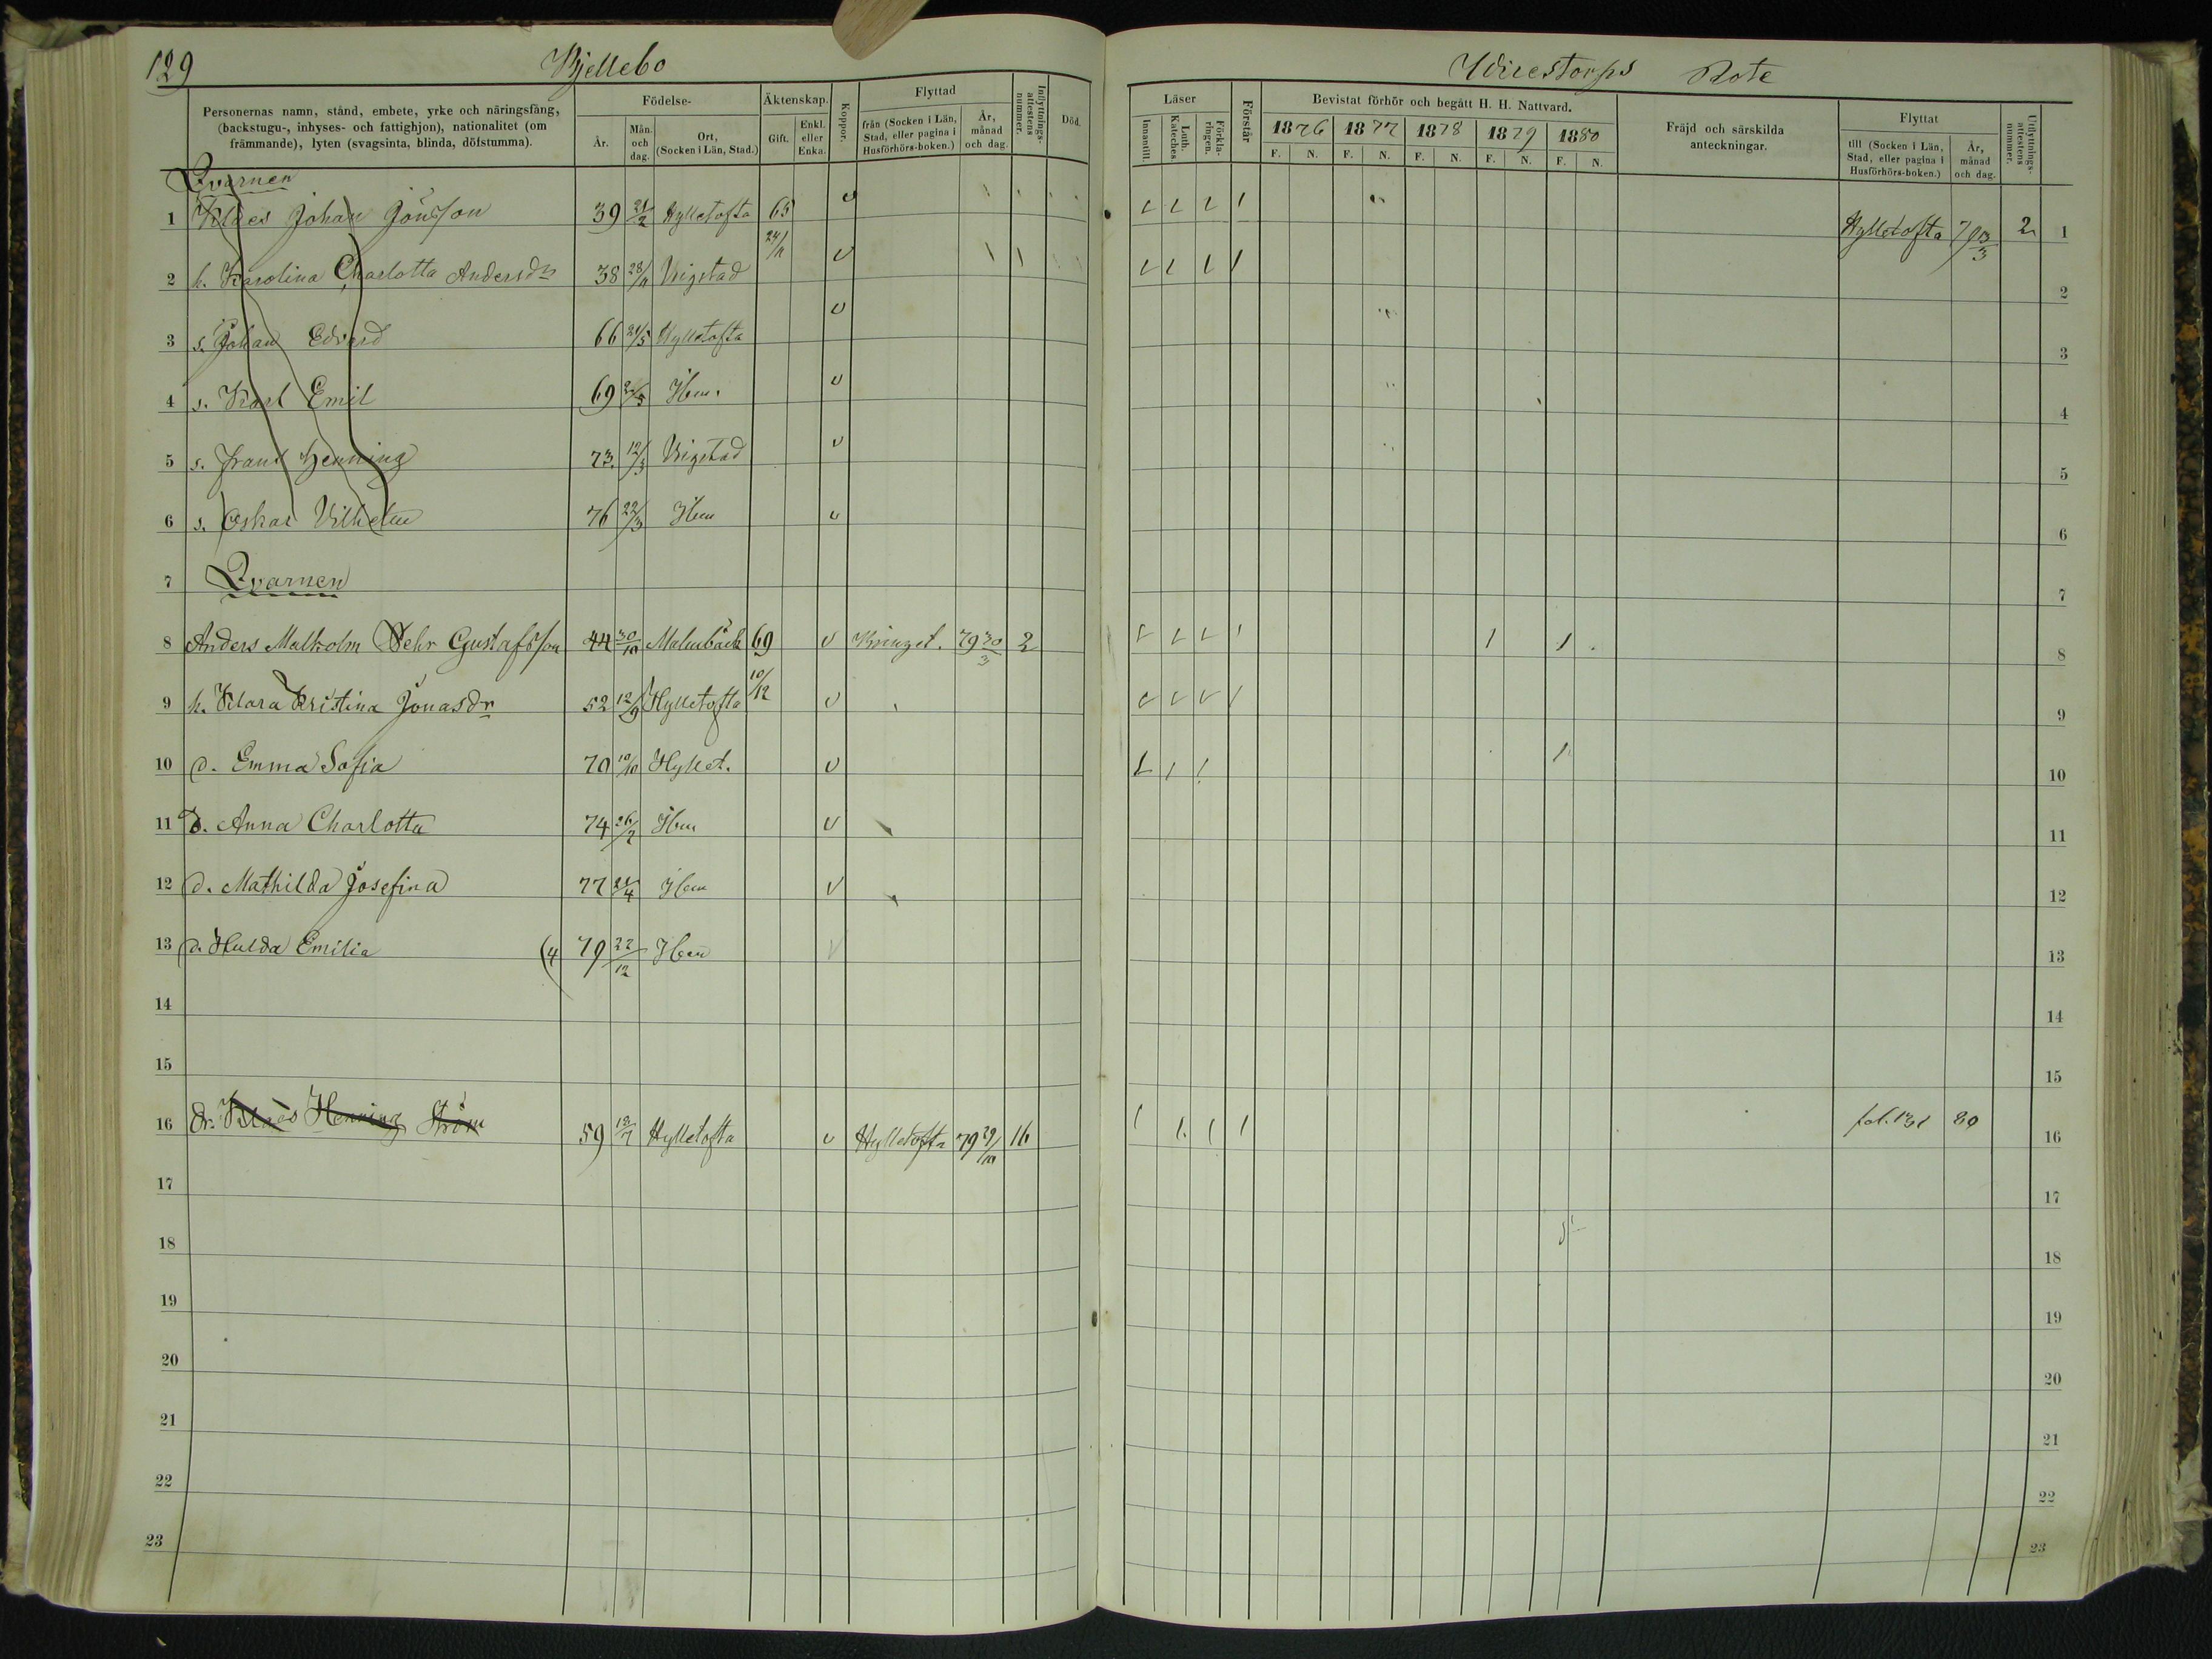 129 Bjellebo
Personernas namn, stånd, embete, yrke och näringsfång, (backstugu-, inhyses- och fattighjon), nationalitet (om främmande), lyten (svagsinta, blinda, döfstumma).
Födelse- År. Mån. och dag. Ort, (Socken i Län, Stad.)
Äktenskap. Gift. Enkl. eller Enka.
Koppor.
Flyttad från (Socken i Län, Stad, eller pagina i Husförhörs-boken.) År, månad och dag.
Inflyttnings-attestens nummer.
Död.
Qvarnen
1 Klaes Johan Jönsson 39 21/2 Hylletofta 65
2 h. Karolina Charlotta Andersdr 38 28/11 Vrigstad 24/11
3 s. Johan Edvard 66 21/5 Hylletofta
4 s. Karl Emil 69 Ibm.
5 s. Frans Henning 73 12/3 Vrigstad
6 s. Oskar Vilhelm 76 22/3 Ibm
7 Qvarnen
8 Anders Malkolm Fehr Gustafsson 44 30/10 Malmbäck 69 v 79 30/3 2
9 h. Klara Kristina Jonasdr 52 12/9 Hylletofta 10/12 v
10 d. Emma Sofia 70 10/10 Hyllet. v
11 d. Anna Charlotta 74 26/2 Ibm v
12 d. Mathilda Josefina 77 21/4 Ibm v
13 d. Hulda Emilia (4 79 22/12 Ibm v
14
15
16 Dr. Klaes Henning Ström 59 13/7 Hylletofta v Hylletofta 79 29/10 16
17
18
19
20
21
22
23
Rote
Läser Innantill. Luth. Kateches. Förkla-ringen.
Förstår
Bevistat förhör och begått H. H. Nattvard.
1876 1877 1878 1879 1880
F. N. F. N. F. N. F. N. F. N.
Fräjd och särskilda anteckningar.
Flyttat till (Socken i Län, Stad, eller pagina i Husförhörs-boken.) År, månad och dag.
Utflyttnings-attestens nummer.
Hylletofta 2 1
2
3
4
5
6
7
8
9
10
11
12
13
14
15
fol. 131 80 16
17
18
19
20
21
22
23